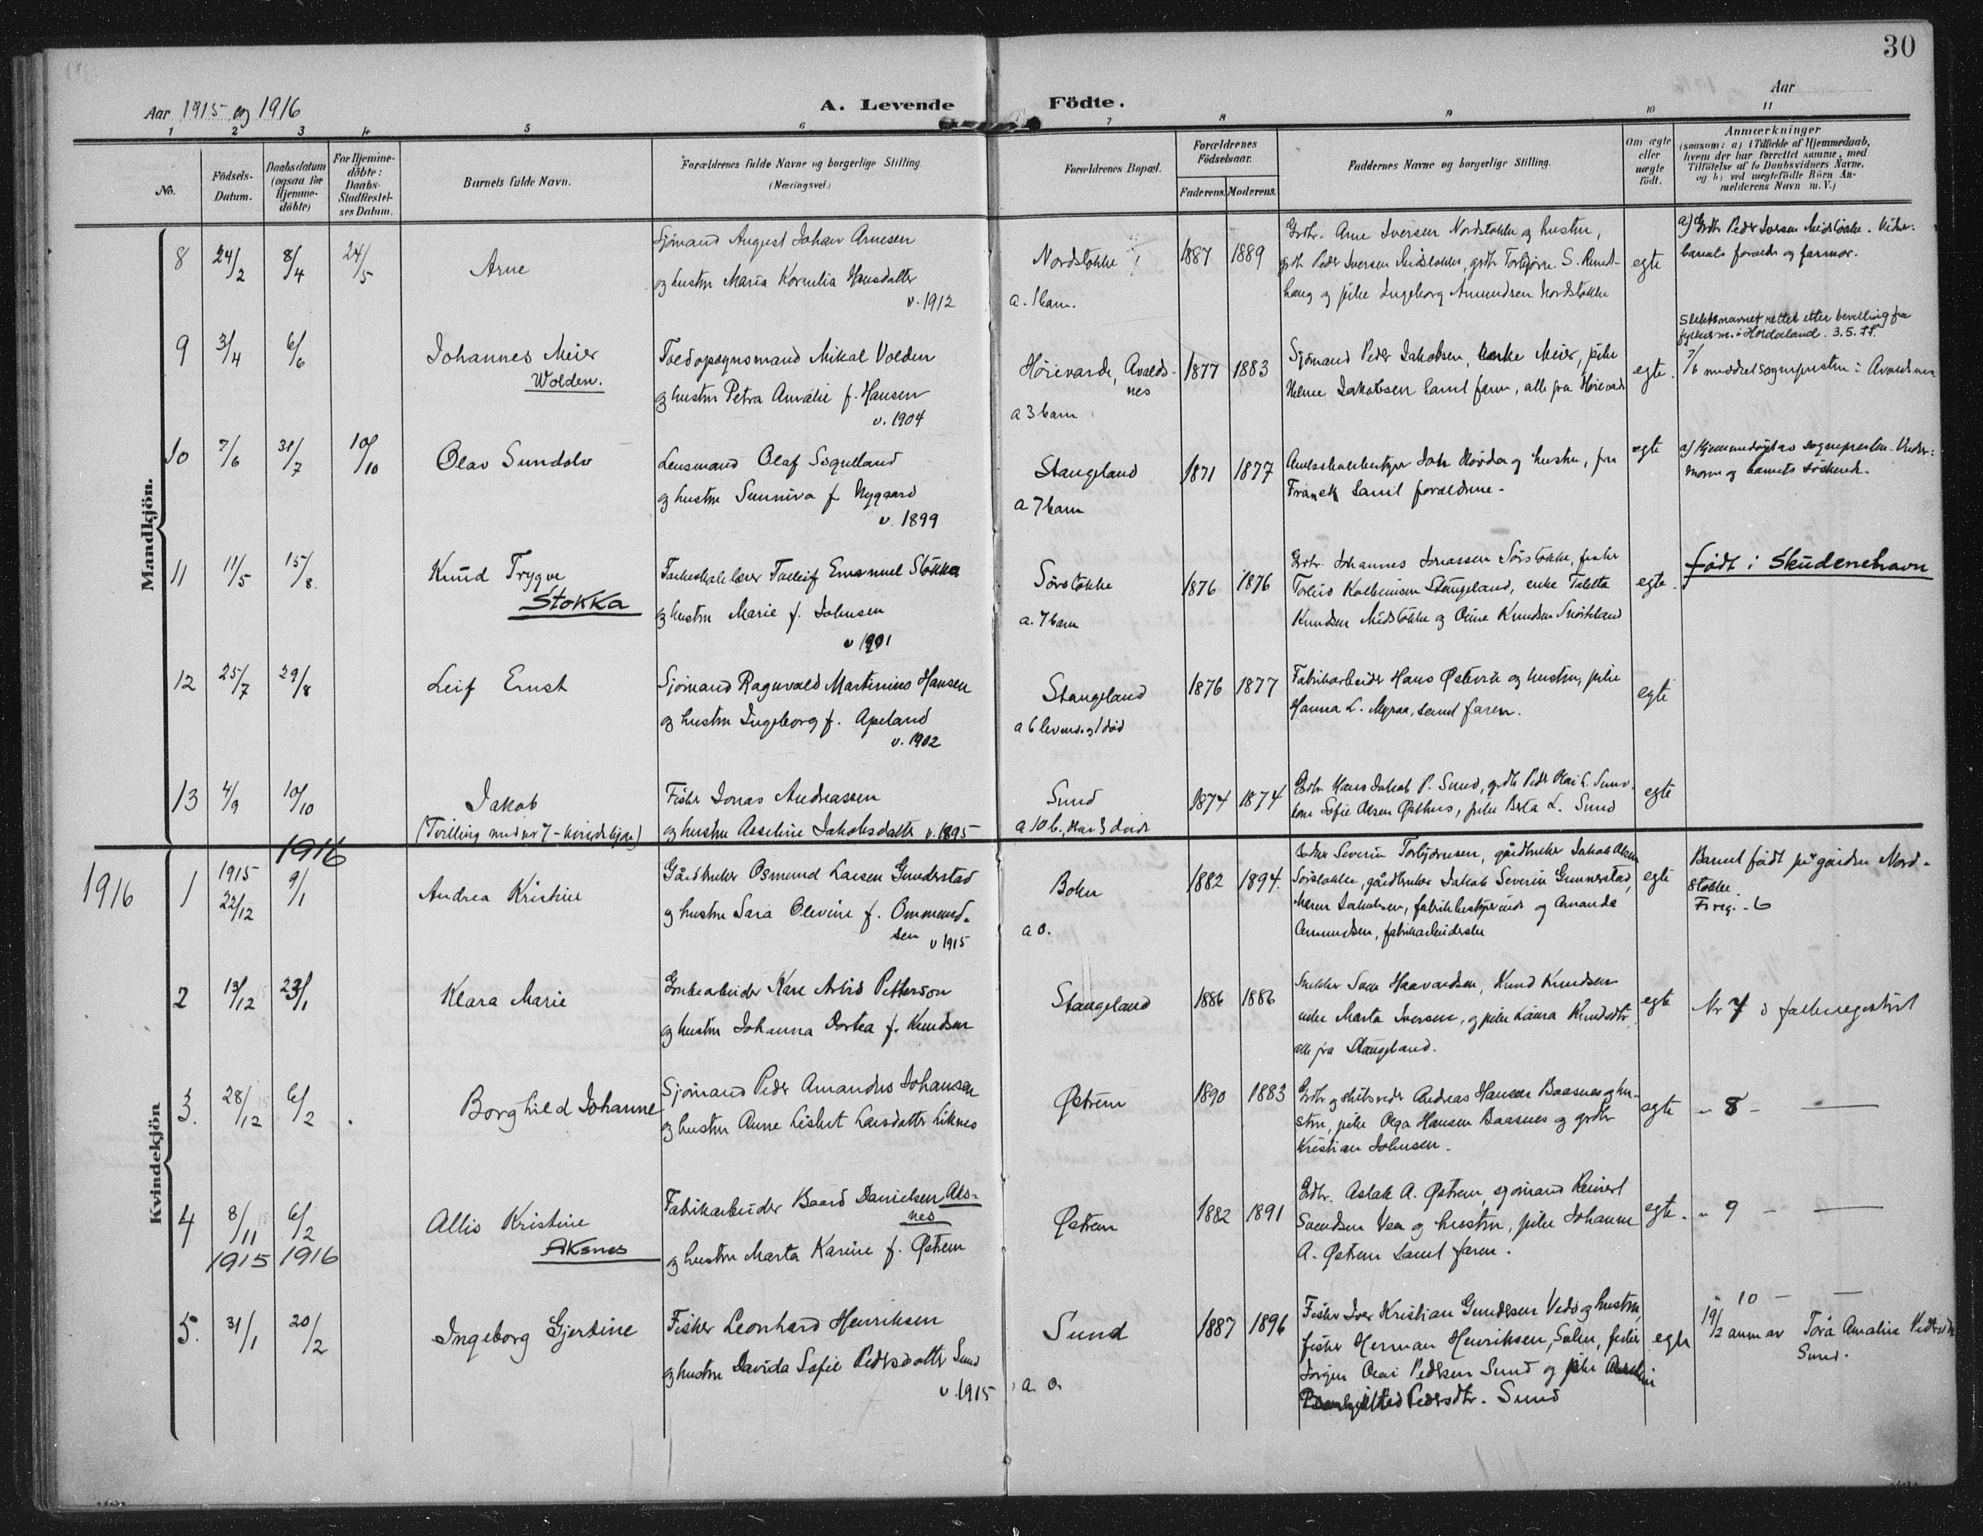 30
Aar 1915 og 1916
A. Levende Födte.
Aar
1 2 3 4 5 6 7 8 9 10 11
No.
Födsels-
Datum.
Daabsdatum
(ogsaa for
Hjemme-
döbte)
For Hjemme-
döbte:
Daabs-
Stadfæstel-
ses Datum.
Barnets fulde Navn.
Forældrenes fulde Navne og borgerlige Stilling.
(Næringsvei.)
Forældrenes Bopæl.
Forældrenes
Födselsaar.
Faderens. Moderens.
Faddernes Navne og borgerlige Stilling.
Om ægte
eller
uægte
födt.
Anmærkninger
(saasom: a) i Tilfælde af Hjemmedaab,
hvem der har forrettet samme, med
Tilföielse af to Daabsvidners Navne,
og b) ved uægtefödte Börn An-
melderens Navn m. V.)
Mandkjön.
8 24/2 8/4 24/5 Arne
Sjömand August Johan Arnesen
og hustru Maria Kornelia Hansdatter
v. 1912
Nordstokke
a. 1 barn.
1887 1889
Grdbr. Arne Iversen Nordstokke og hustru,
grdb. Peder Iversen Midstokke, grdbr Torbjörn S.
haug og pike Ingeborg Amundsen Nordstokke
egte
a) Grdb Peder Iversen Midstokke.
barnets forældr og farmor.
9 3/4 6/6 Johannes Meier
Wolden.
Mikal Volden
og hustru Petra Amalie f. Hansen
v. 1904
Höievarde, Avalds-
nes
a 3 barn
1877 1883
Sjömand Peder Jakobsen, enke Meier, pike
Jakobsen samt faren, alle fra
egte.
Slektsnavnet rettet etter bevilling fra
fylkesm. i Hordaland. 3.5.
7/6 meddelt sognepresten i Avaldsnes
10 7/6 31/7 10/10 Olav Sundolv
Lensmand Olaf
og hustru Sunniva f. Nygaard
v. 1899
Stangeland
a 7 barn
1871 1877
og hustru, fru
Franck samt forældrene.
egte
a) Hjemmedöpt av sognepresten.
og barnets
11 11/5 15/8. Knud Trygve
Stokka
Emanuel Stokka
og hustru Marie f. Johnsen
v 1901
Sörstokke
a. 7 barn
1876 1876
Grdbr. Johannes Jonassen Sörstokke, fisker
Stangeland, enke Taletta
Knudsen Midstokke og Knudsen
egte.
født i Skudeneshavn
12 25/7 29/8 Leif Ernst
Sjömand Ragnvald Martinius Hansen
og hustru Ingeborg f. Apeland
v. 1902
Stangeland
a 6 levend. og 1 död
1876 1877
Fabrikarbeider Hans Östevik og hustru, pike
Hanna L. Myraa, samt faren.
egte
13 4/9 10/10 Jakob
(Tvilling med nr 7 – kvindelige)
Fisker Jonas Andreassen
og hustru Asseline Jakobsdatter v. 1895
Sund
a 10 b., 3 döde
1874 1874
Grdbr Hans Jakob P. Sund, grdb Peder Olai Sund
Sofie Olsen, pike Berta L. Sund
egte
1916
Kvindekjön
1916 1 1915 22/12 9/1 Andrea Kristine
Gårdbruker Osmund Larsen Gunderstad
og hustru Sara Olevine f. Ommund-
sen v 1915
Boken
a 0.
1882 1894.
Severin Torbjörnsen, gårdbruker Jakob
Sörstokke, gårdbruker Jakob Severin Gunnerstad,
Maren Jakobsen, og Amanda
Amundsen, fabrikarbeiderske
egte
Barnet födt på gården Nord-
stokke.
F. reg. - 6
2 13/12 23/1 Klara Marie
Karl Arvid Petterson
og hustru Johanna Dortea f. Knudsen
Stangeland
1886 1886
Sven Haavardsen, Knud Knudsen
enke Marta Iversen, og pike Laura Knudsdtr.
alle fra Stangeland.
egte
Nr 7 i fellesregistret
3. 28/12 6/2 Borghild Johanne
Sjömand Peder Amandus Johansen
og hustru Anne Lisbet Larsdatter Liknes
Östrem
1890 1883
Grdbr og Andreas Hansen Baasnes og hu-
stru, pike Olga Hansen Baasnes og grdbr
Kristian Johnsen.
egte
" 8 -
4 8/11 6/2 Allis Kristine
1915 1916 Aksnes
Fabrikarbeider Baard Danielsen Aks-
nes
og hustru Marta Karine f. Östrem
Östrem
1882 1891
Grdbr. Aslak A. Östrem, sjömand Reinert
Svendsen Vea og hustru, pike Johanne
A. Östrem samt faren.
egte.
" 9 -
5. 31/1 20/2 Ingeborg Gjertine
Fisker Leonhard Henriksen
og hustru Davida Sofie Pedersdatter Sund
v. 1915
Sund
a. 0.
1887 1896
Fisker Iver Kristian Gundersen Vedö og hustru,
fisker Herman Henriksen, Salen, fisker
Jörgen Olai Pedersen Sund og pike
Pedersdtr. Sund
egte
" 10 -
19/2 anm av Tora Amalie
Sund.